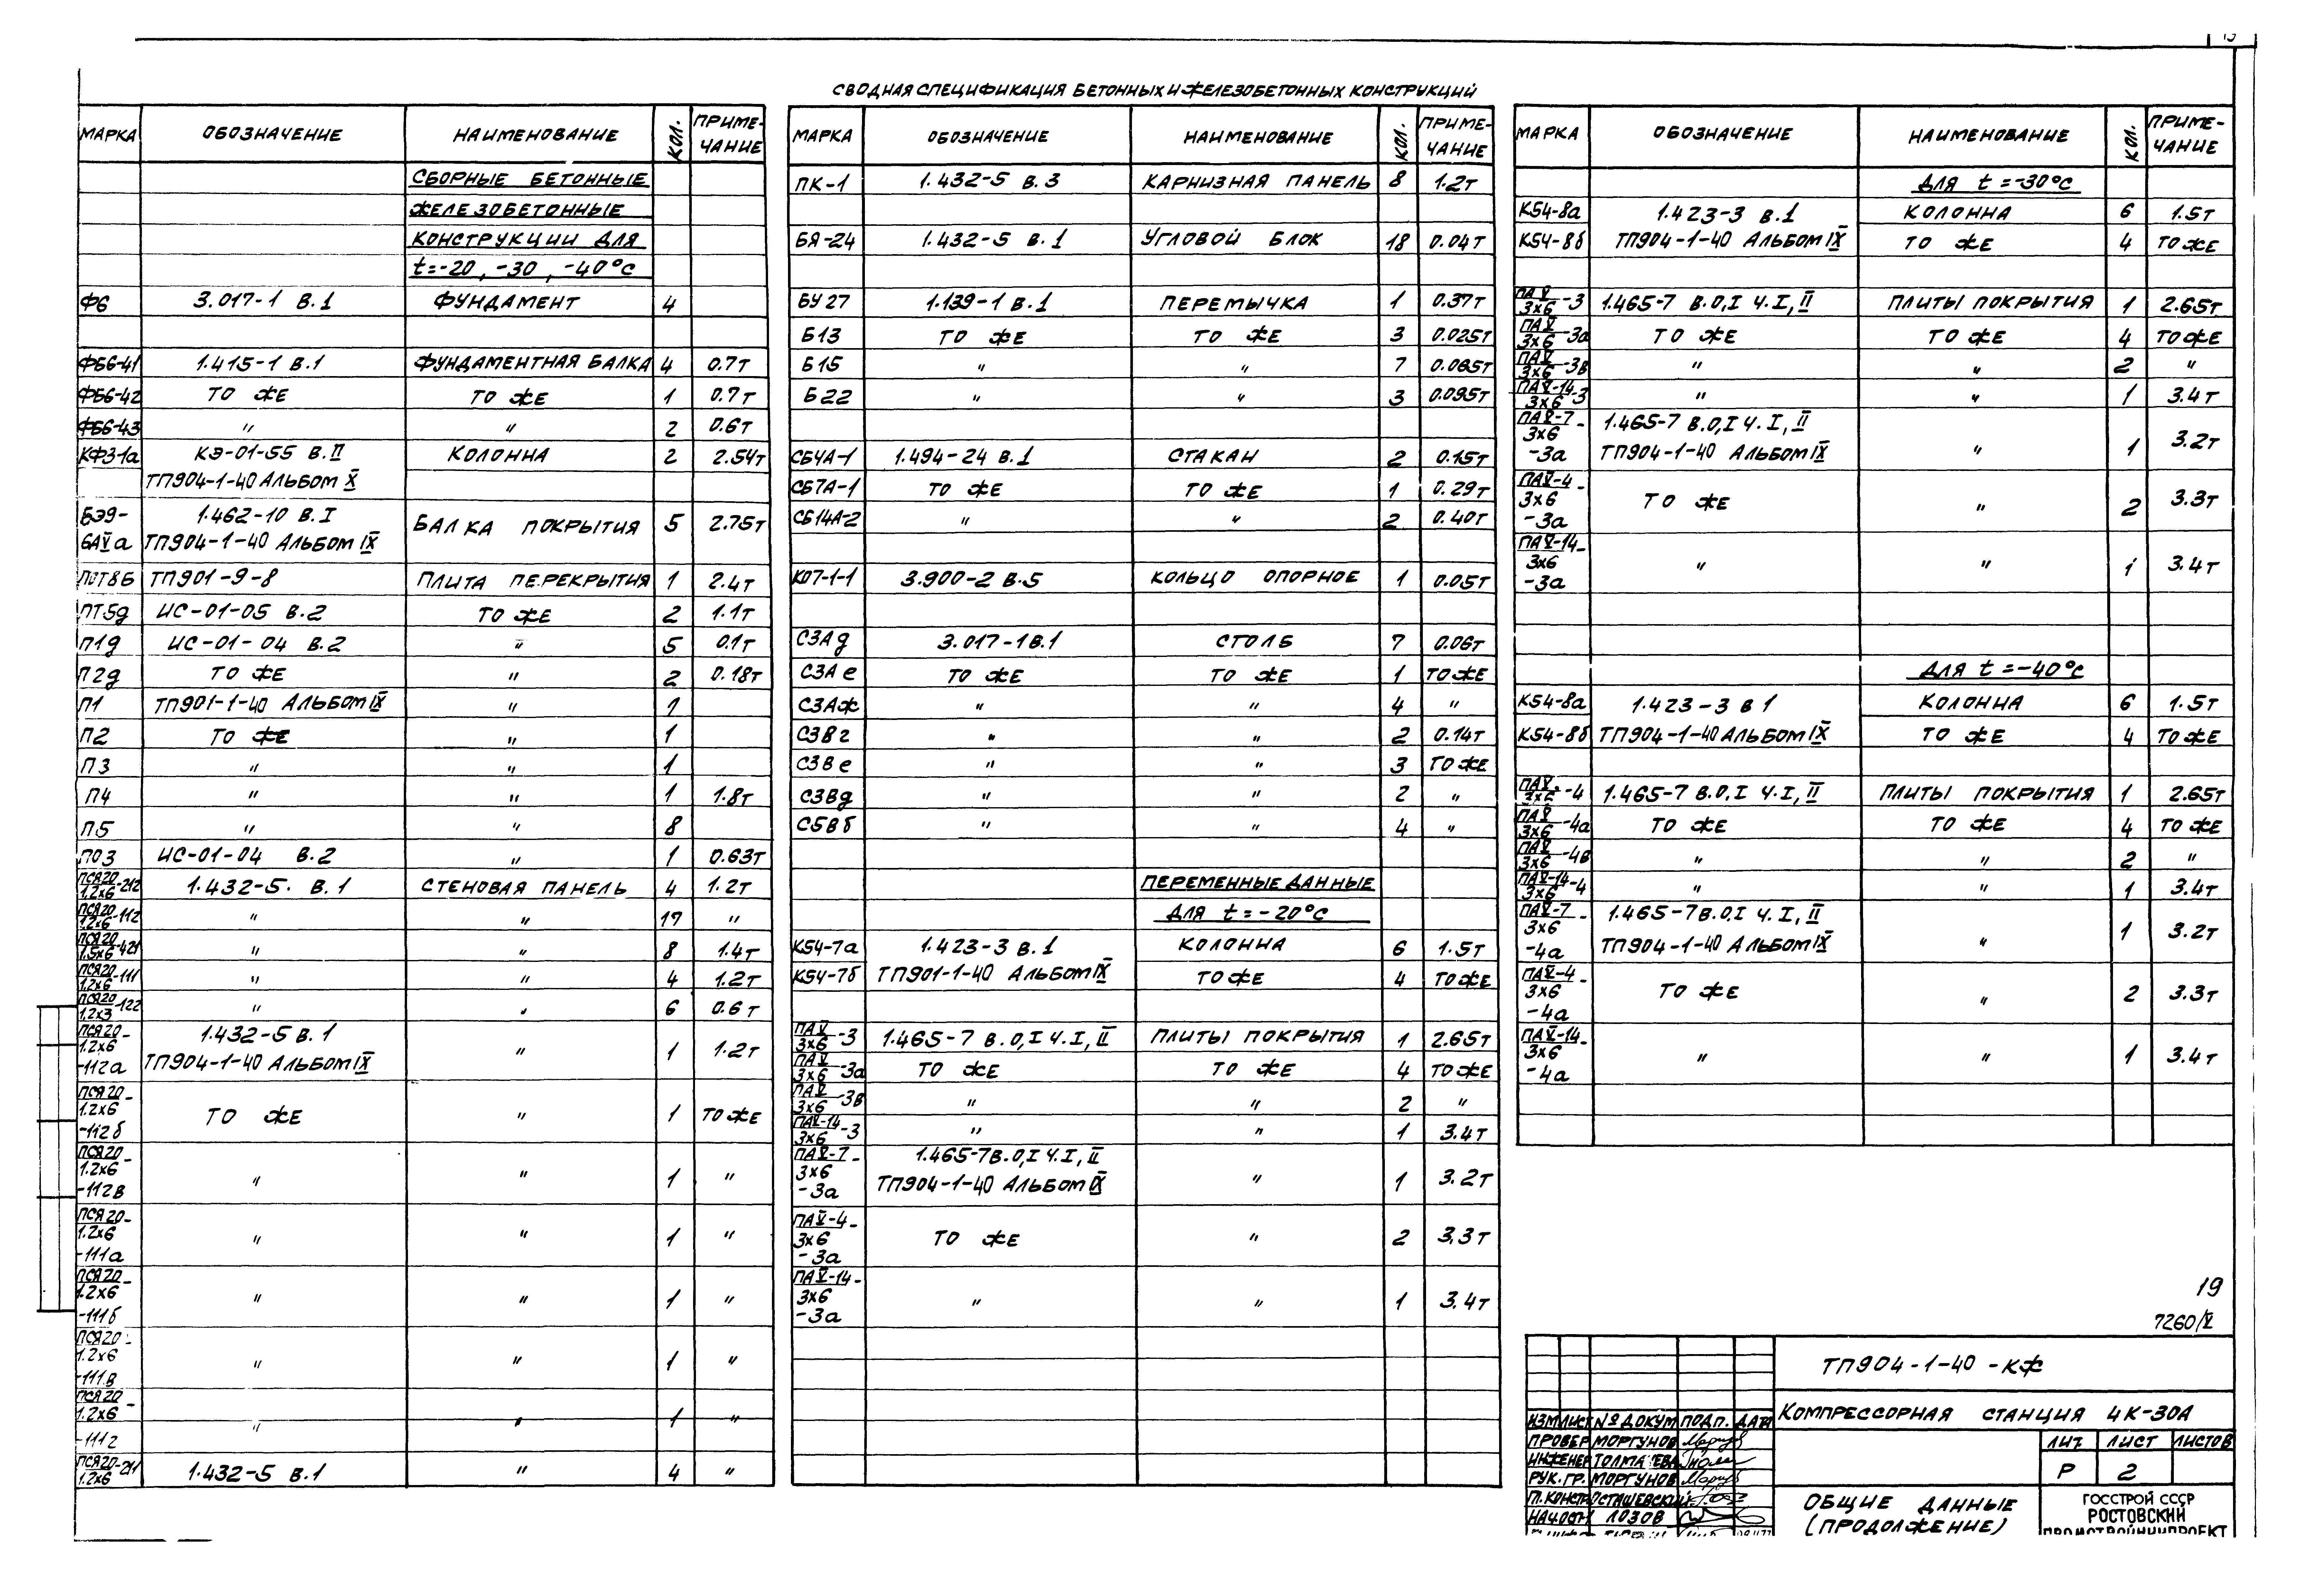 СВОДНАЯ СПЕЦИФИКАЦИЯ БЕТОННЫХ И ЖЕЛЕЗОБЕТОННЫХ КОНСТРУКЦИЙ
МАРКА ОБОЗНАЧЕНИЕ НАИМЕНОВАНИЕ КОЛ. ПРИМЕ-ЧАНИЕ
СБОРНЫЕ БЕТОННЫЕ
ЖЕЛЕЗОБЕТОННЫЕ
КОНСТРУКЦИИ ДЛЯ
t=-20, -30, -40°С
Ф6 3.017-1 В.1 ФУНДАМЕНТ 4
ФБ6-41 1.415-1 В.1 ФУНДАМЕНТНАЯ БАЛКА 4 0.7т
ФБ6-42 ТО ЖЕ ТО ЖЕ 1 0.7т
ФБ6-43 " " 2 0.6т
КФ31а КЭ-01-55 В.II КОЛОННА 2 2.54т
ТП904-1-40 АЛЬБОМ X
БЭ9- 1.462-10 В.I БАЛКА ПОКРЫТИЯ 5 2.75т
6АVа ТП904-1-40 АЛЬБОМ IX
ТП901-9-8 ПЛИТА ПЕРЕКРЫТИЯ 1 2.4т
ПТ5д ИС-01-05 В.2 ТО ЖЕ 2 1.1т
П1д ИС-01-04 В.2 " 5 0.1т
П2д ТО ЖЕ " 2 0.18т
П1 ТП901-1-40 АЛЬБОМ IX " 1
П2 ТО ЖЕ " 1
П3 " " 1
П4 " " 1 1.8т
П5 " " 8
ПО3 ИС-01-04 В.2 " 1 0.63т
ПСЯ20/1.2х6-212 1.432-5. В.1 СТЕНОВАЯ ПАНЕЛЬ 4 1.2т
ПСЯ20/1.2х6-112 " " 17 "
ПСЯ20/1.5х6-421 " " 8 1.4т
ПСЯ20/1.2х6-111 " " 4 1.2т
ПСЯ20/1.2х3-122 " " 6 0.6т
ПСЯ20- 1.432-5 В.1
1.2х6 " 1 1.2т
-112а ТП904-1-40 АЛЬБОМ IX
ПСЯ20-
1.2х6 ТО ЖЕ " 1 ТО ЖЕ
-112б
ПСЯ20-
1.2х6 " " 1 "
-112в
ПСЯ20-
1.2х6 " " 1 "
-111а
ПСЯ20-
1.2х6 " " 1 "
-111б
ПСЯ20-
1.2х6 " " 1 "
-111в
ПСЯ20-
1.2х6 " " 1 "
-111г
ПСЯ20/1.2х6-211 1.432-5 В.1 " 4 "
МАРКА ОБОЗНАЧЕНИЕ НАИМЕНОВАНИЕ КОЛ. ПРИМЕ-ЧАНИЕ
ПК-1 1.432-5 В.3 КАРНИЗНАЯ ПАНЕЛЬ 8 1.2т
БЯ-24 1.432-5 В.1 УГЛОВОЙ БЛОК 18 0.04т
БУ27 1.139-1 В.1 ПЕРЕМЫЧКА 1 0.37т
Б13 ТО ЖЕ ТО ЖЕ 3 0.025т
Б15 " " 7 0.065т
Б22 " " 3 0.095т
СБ4А-1 1.494-24 В.1 СТАКАН 2 0.15т
СБ7А-1 ТО ЖЕ ТО ЖЕ 1 0.29т
СБ14А-2 " " 2 0.40т
КО7-1-1 3.900-2 В.5 КОЛЬЦО ОПОРНОЕ 1 0.05т
С3Ад 3.017-1 В.1 СТОЛБ 7 0.06т
С3Ае ТО ЖЕ ТО ЖЕ 1 ТО ЖЕ
С3Аж " " 4 "
С3Вг " " 2 0.14т
С3Ве " " 3 ТО ЖЕ
С3Вд " " 2 "
С5Вб " " 4 "
ПЕРЕМЕННЫЕ ДАННЫЕ
ДЛЯ t=-20°С
К54-7а 1.423-3 В.1 КОЛОННА 6 1.5т
К54-7б ТП901-1-40 АЛЬБОМ IX ТО ЖЕ 4 ТО ЖЕ
ПАV/3х6-3 1.465-7 В.0,I Ч.I,II ПЛИТЫ ПОКРЫТИЯ 1 2.65т
ПАV/3х6-3а ТО ЖЕ ТО ЖЕ 4 ТО ЖЕ
ПАV/3х6-3в " " 2 "
ПАV-14/3х6-3 " " 1 3.4т
ПАV-7- 1.465-7 В.0,I Ч.I,II
3х6 " 1 3.2т
-3а ТП904-1-40 АЛЬБОМ IX
ПАV-4-
3х6 ТО ЖЕ " 2 3.3т
-3а
ПАV-14-
3х6 " " 1 3.4т
-3а
МАРКА ОБОЗНАЧЕНИЕ НАИМЕНОВАНИЕ КОЛ. ПРИМЕ-ЧАНИЕ
ДЛЯ t=-30°С
К54-8а 1.423-3 В.1 КОЛОННА 6 1.5т
К54-8б ТП904-1-40 АЛЬБОМ IX ТО ЖЕ 4 ТО ЖЕ
ПАV/3х6-3 1.465-7 В.0,I Ч.I,II ПЛИТЫ ПОКРЫТИЯ 1 2.65т
ПАV/3х6-3а ТО ЖЕ ТО ЖЕ 4 ТО ЖЕ
ПАV/3х6-3в " " 2 "
ПАV-14/3х6-3 " " 1 3.4т
ПАV-7- 1.465-7 В.0,I Ч.I,II
3х6 " 1 3.2т
-3а ТП904-1-40 АЛЬБОМ IX
ПАV-4-
3х6 ТО ЖЕ " 2 3.3т
-3а
ПАV-14-
3х6 " " 1 3.4т
-3а
ДЛЯ t=-40°С
К54-8а 1.423-3 В 1 КОЛОННА 6 1.5т
К54-8б ТП904-1-40 АЛЬБОМ IX ТО ЖЕ 4 ТО ЖЕ
ПАV/3х6-4 1.465-7 В.0,I Ч.I,II ПЛИТЫ ПОКРЫТИЯ 1 2.65т
ПАV/3х6-4а ТО ЖЕ ТО ЖЕ 4 ТО ЖЕ
ПАV/3х6-4в " " 2 "
ПАV-14/3х6-4 " " 1 3.4т
ПАV-7- 1.465-7 В.0,I Ч.I,II
3х6 " 1 3.2т
-4а ТП904-1-40 АЛЬБОМ IX
ПАV-4-
3х6 ТО ЖЕ " 2 3.3т
-4а
ПАV-14-
3х6 " " 1 3.4т
-4а
19
7260/V
ТП904-1-40-КЖ
КОМПРЕССОРНАЯ СТАНЦИЯ 4К-30А
ИЗМ ЛИСТ № ДОКУМ ПОДП. ДАТА
ПРОВЕР МОРГУНОВ
ИНЖЕНЕР
РУК.ГР. МОРГУНОВ
ОСТАШЕВСКИЙ
НАЧ.ОТД ЛОЗОВ
ЛИТ ЛИСТ ЛИСТОВ
Р 2
ОБЩИЕ ДАННЫЕ
(ПРОДОЛЖЕНИЕ)
ГОССТРОЙ СССР
РОСТОВСКИЙ
ПРОМСТРОЙНИИПРОЕКТ